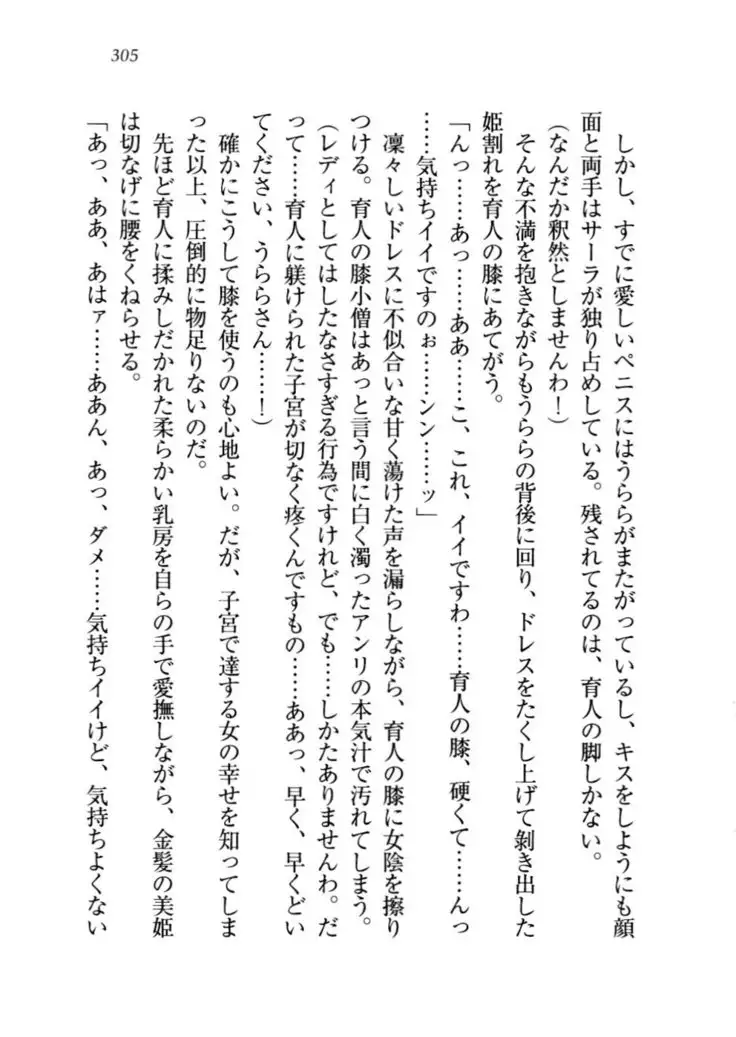 305
しかし、すでに愛しいペニスにはうららがまたがっているし、キスをしようにも顔
面と両手はサーラが独り占めしている。残されてるのは、育人の脚しかない。
(なんだか釈然としませんわ！)
そんな不満を抱きながらもうららの背後に回り、ドレスをたくし上げて剝き出した
姫割れを育人の膝にあてがう。
「んっ……あっ……ああ……こ、これ、イイですわ……育人の膝、硬くて……んっ
……気持ちイイですのぉ……シン……ッ」
凜々しいドレスに不似合いな甘く蕩けた声を漏らしながら、育人の膝に女陰を擦り
つける。育人の膝小僧はあっと言う間に白く濁ったアンリの本気汁で汚れてしまう。
(レディとしてはしたなさすぎる行為ですけれど、でも……しかたありませんわ。だ
って……育人に躾けられた子宮が切なく疼くんですもの……ああっ、早く、早くどい
てください、うららさん……！)
確かにこうして膝を使うのも心地よい。だが、子宮で達する女の幸せを知ってしま
った以上、圧倒的に物足りないのだ。
先ほど育人に揉みしだかれた柔らかい乳房を自らの手で愛撫しながら、金髪の美姫
は切なげに腰をくねらせる。
「あっ、ああ、あはァ……ああん、あっ、ダメ……気持ちイイけど、気持ちよくない